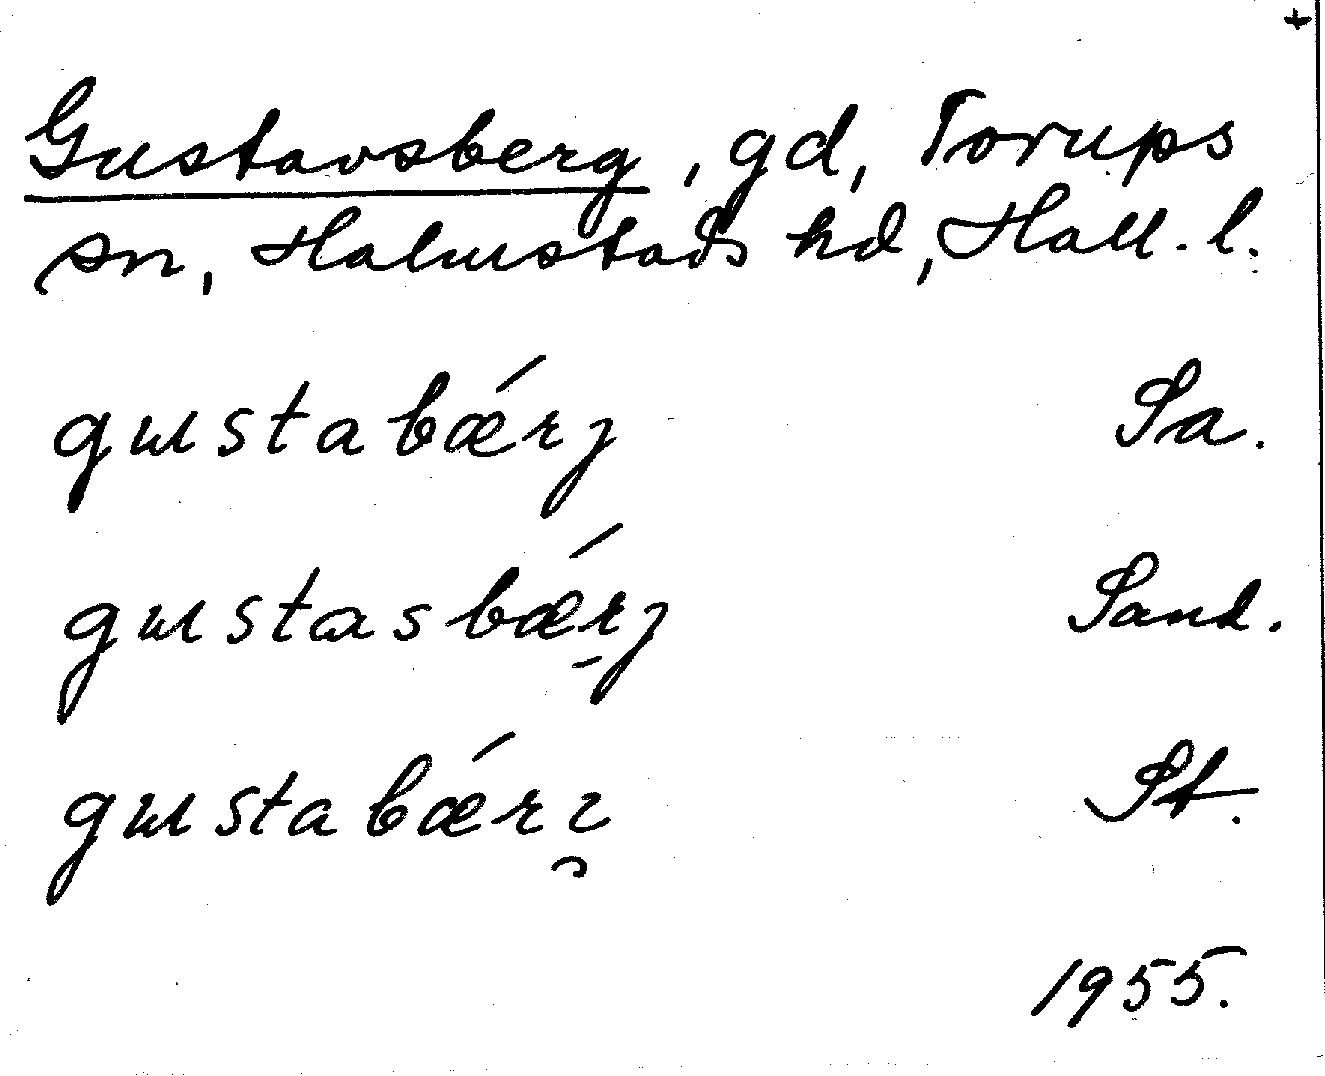 +
Gustavsberg, gd, Torups
sn, Halmstads hd, Hall. l.
gustabǽrj Sa.
gustasbǽrj Sand.
gustabǽrı̯ St.
1955.